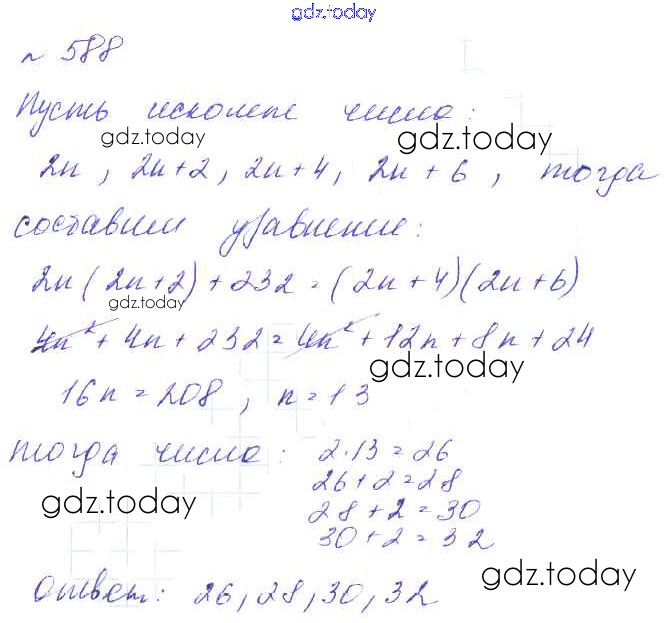 gdz.today
№ 588
Пусть искомые числа:
gdz.today
gdz.today
2n, 2n+2, 2n+4, 2n+6, тогда
составим уравнение:
2n(2n+2)+232=(2n+4)(2n+6)
gdz.today
4n²+4n+232=4n²+12n+8n+24
gdz.today
16n=208, n=13
тогда числа: 2·13=26
26+2=28
gdz.today
28+2=30
30+2=32
gdz.today
Ответ: 26, 28, 30, 32